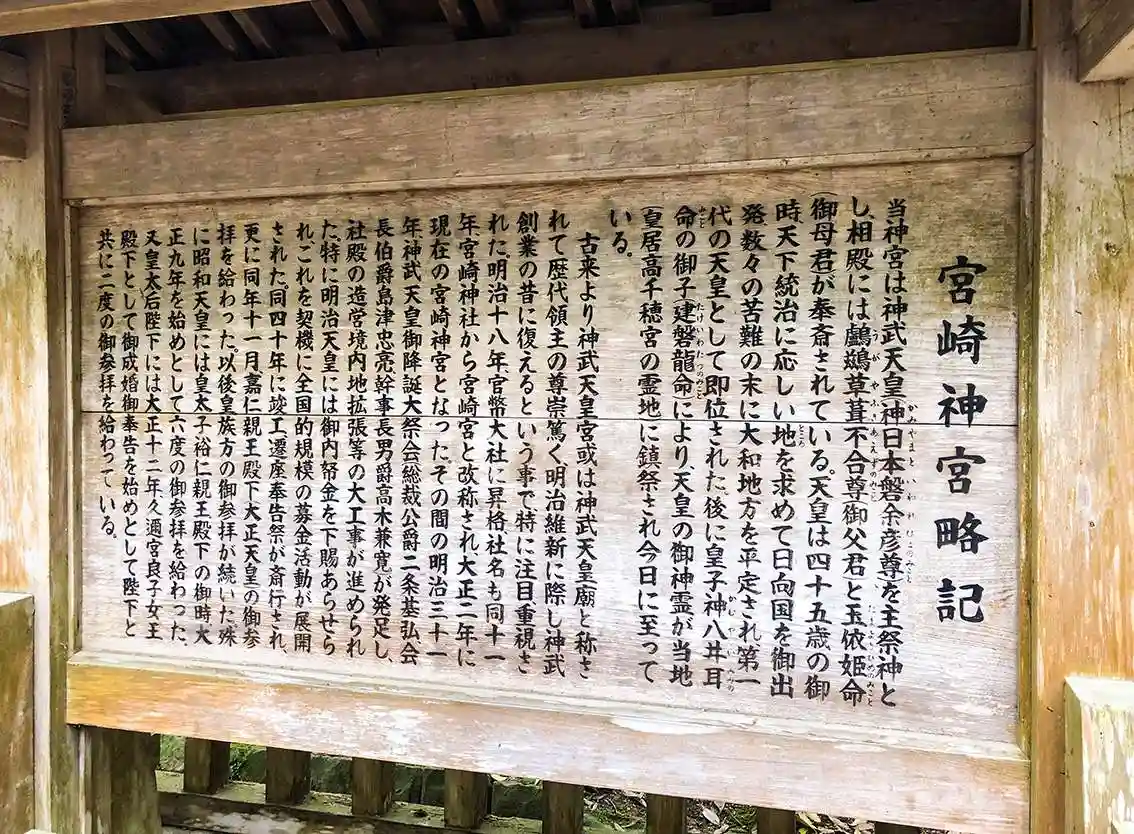 宮崎神宮略記
当神宮は神武天皇(神日本磐余彦尊)を主祭神と
し、相殿には鸕鷀草葺不合尊御父君と玉依姫命
(御母君)が奉斎されている。天皇は四十五歳の御
時、天下統治に応しい地を求めて日向国を御出
発、数々の苦難の末に大和地方を平定され、第一
代の天皇として即位された。後に皇子神八井耳
命の御子建磐龍命により、天皇の御神霊が当地
(皇居高千穂宮の霊地)に鎮祭され今日に至って
いる。
古来より神武天皇宮或は神武天皇廟と称さ
れて歴代領主の尊崇篤く明治維新に際し神武
創業の昔に復えるという事で、特に注目重視さ
れた。明治十八年、官幣大社に昇格、社名も同十一
年宮崎神社から宮崎宮と改称され大正二年に
現在の宮崎神宮となった。その間の明治三十一
年神武天皇御降誕大祭会総裁公爵二条基弘会
長伯爵島津忠亮、幹事長男爵高木兼寛が発足し、
社殿の造営境内地拡張等の大工事が進められ
た。特に明治天皇には御内帑金を下賜あらせら
れ、これを契機に全国的規模の募金活動が展開
された。同四十年に竣工遷座奉告祭が斎行され、
更に同年十一月嘉仁親王殿下(大正天皇)の御参
拝を給わった。以後皇族方の御参拝が続いた。殊
に昭和天皇には皇太子裕仁親王殿下の御時大
正九年を始めとして六度の御参拝を給わった。
又皇太后陛下には大正十二年、久邇宮良子女王
殿下として御成婚御奉告を始めとして陛下と
共に二度の御参拝を給わっている。